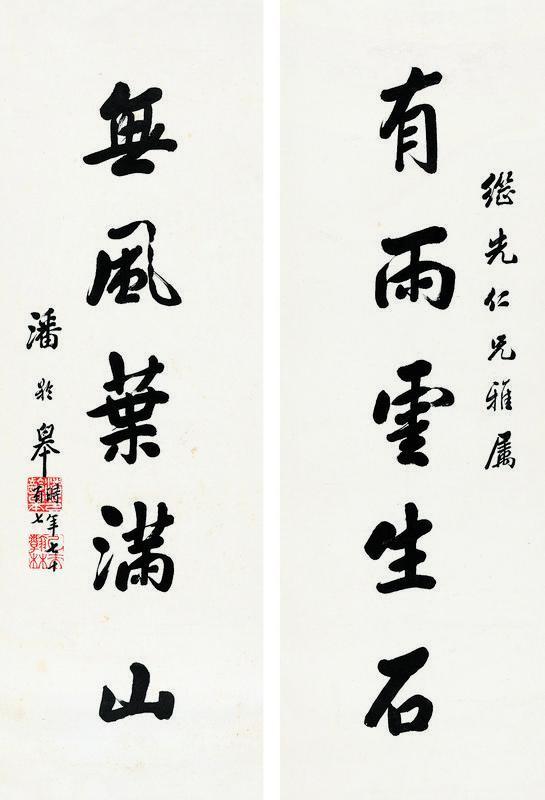 繼先仁兄雅屬
有雨雲生石
無風葉滿山
潘齡皋
時年七十
有七